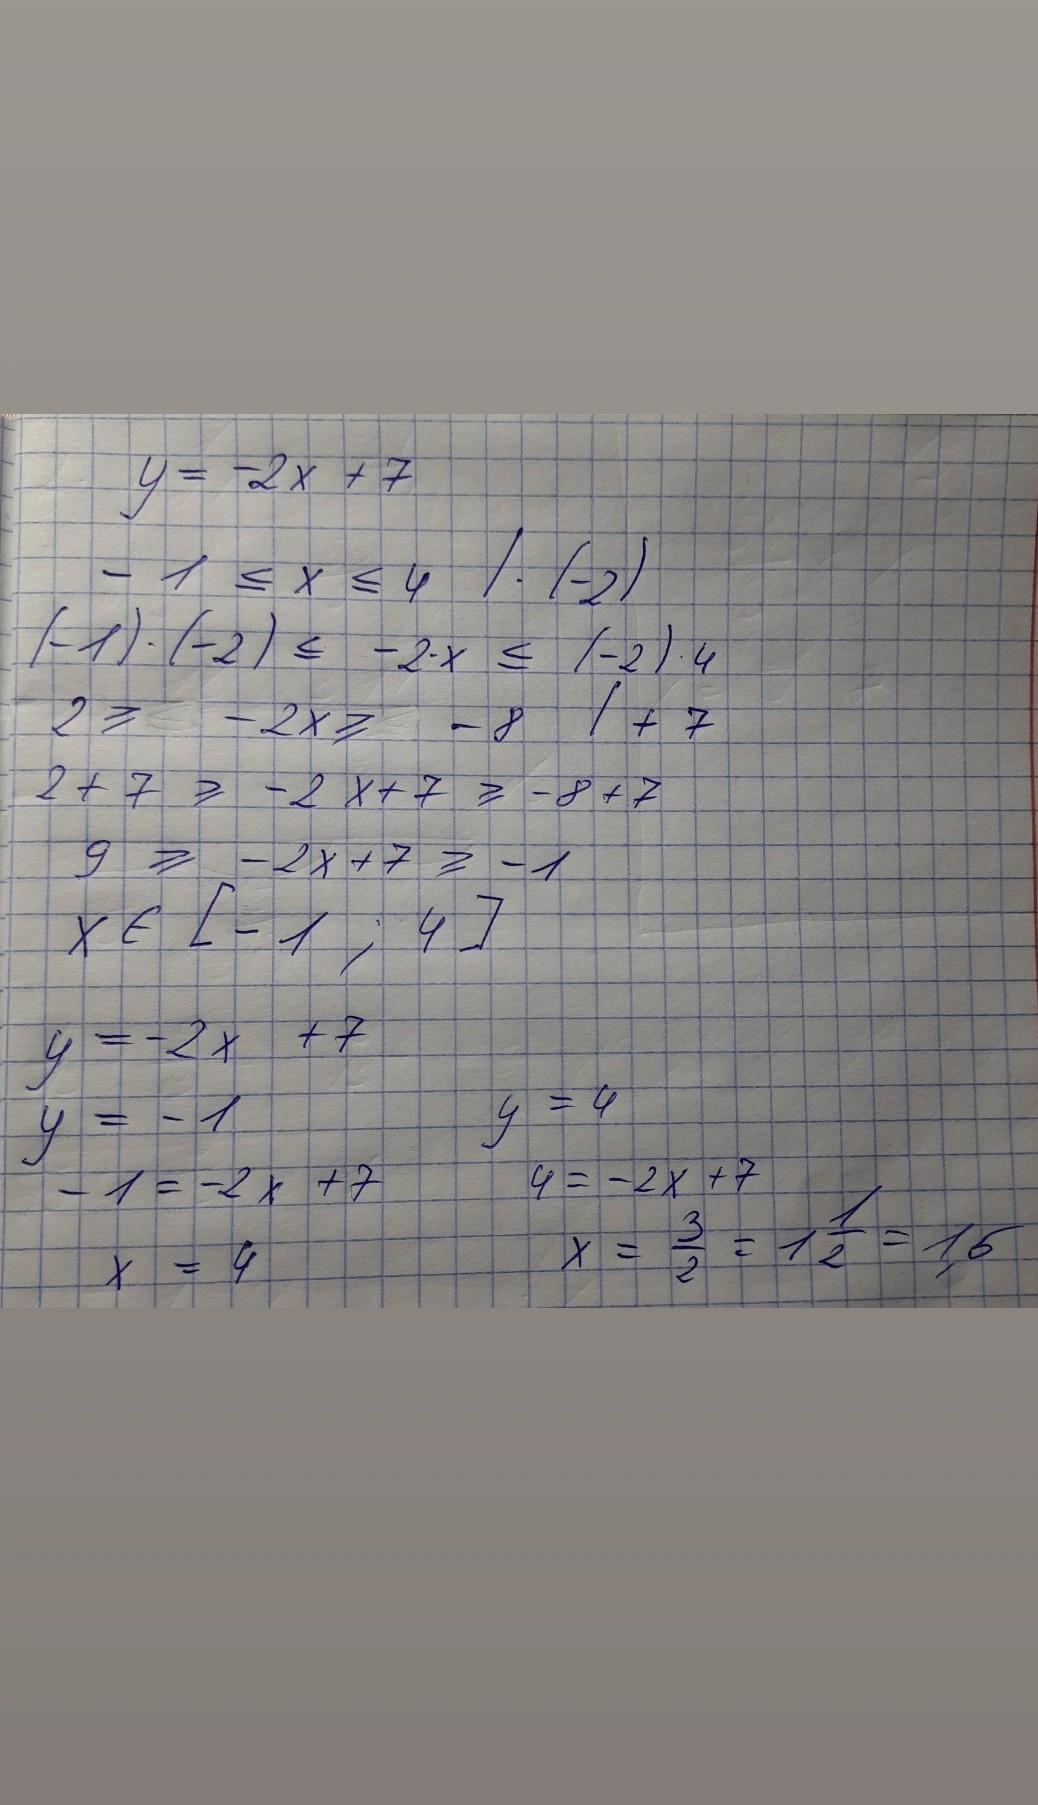 y = -2x + 7
- 1 ≤ x ≤ 4 / · (-2)
(-1) · (-2) ≤ -2·x ≤ (-2) · 4
2 ≥ -2x ≥ -8 / + 7
2 + 7 ≥ -2x+7 ≥ -8+7
9 ≥ -2x+7 ≥ -1
x ∈ [-1 ; 4]
y = -2x + 7
y = -1 y = 4
-1 = -2x +7 4 = -2x +7
x = 4 x = 3/2 = 1 1/2 = 1,5